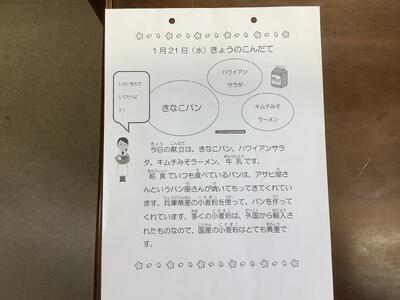 1月21日(水)きょうのこんだて
ハワイアン
サラダ
きなこパン
キムチみそ
ラーメン
してたべよ
う!
今日の献立は、きなこパン、ハワイアンサラ
ダ、キムチみそラーメン、牛乳です。
給食でいつも食べているパンは、アサヒ屋さ
んというパン屋さんが焼いてもってきてくれてい
ます。兵庫県産の小麦粉を使って、パンを作っ
てくれています。多くの小麦粉は、外国から輸入さ
れたものなので、国産の小麦粉はとても貴重で
す。